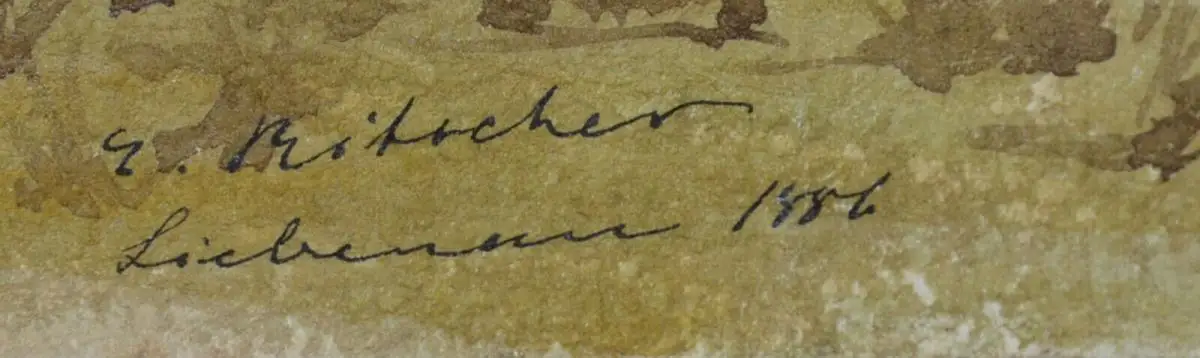 E. Ritscher
Liebenau 1886